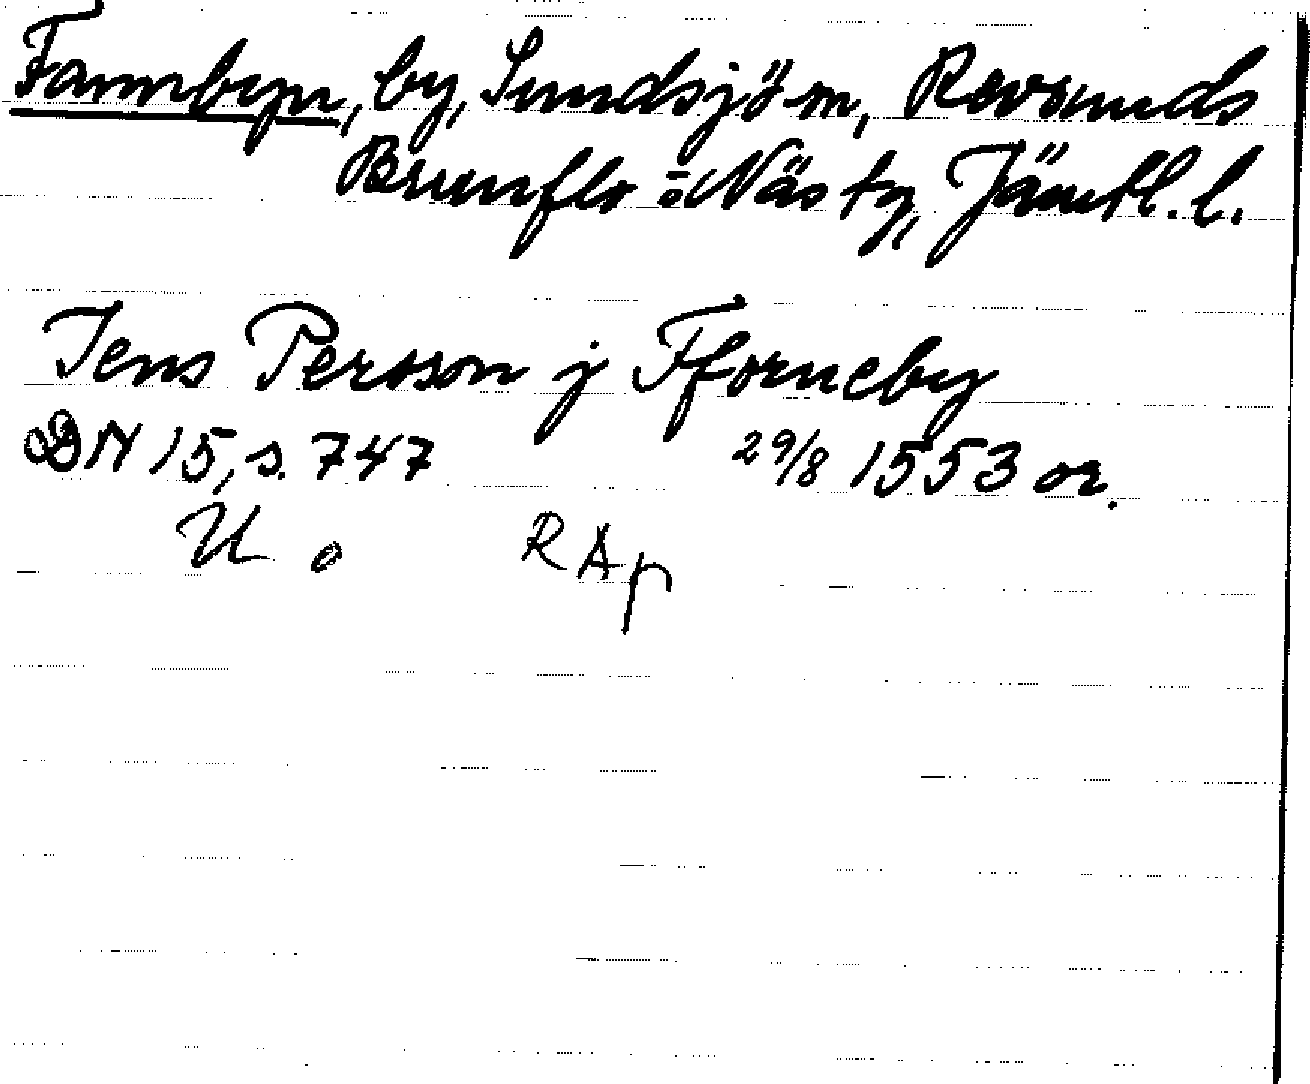 Fannbyn, by, Sundsjö sn, Revsunds
Brunflo o Näs tg, Jämtl. l.
Jens Persson j Fforneby
DN 15, s. 747 29/8 1553 or.
U o RAp